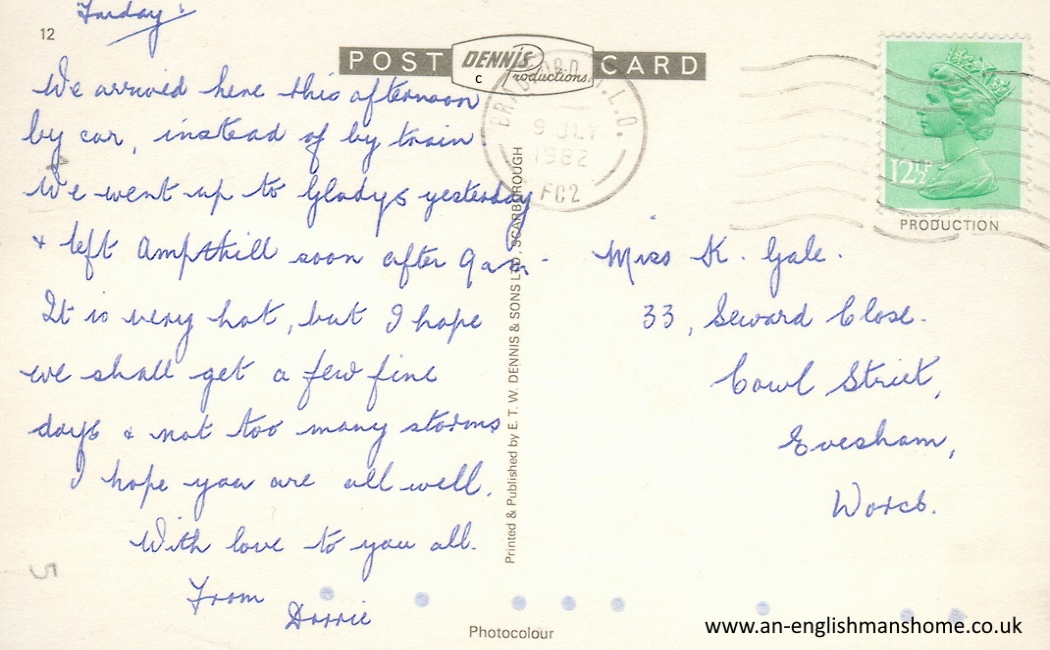 12
POST CARD
DENNIS
Productions
c
We arrived here this afternoon
by car, instead of by train
We went up to Gladys yesterday
+ left Ampthill soon after 9am.
It is very hot, but I hope
we shall get a few fine
days & not too many storms
I hope you are all well.
With love to you all.
From
Dorrie
5
Printed & Published by E. T. W. DENNIS & SONS LTD. SCARBOROUGH
BRADFORD
9 JLY
1982
FC2
12½P
PRODUCTION
Miss K. Gale.
33, Seward Close.
Cowl Street,
Evesham,
Worcs.
Photocolour
www.an-englishmanshome.co.uk